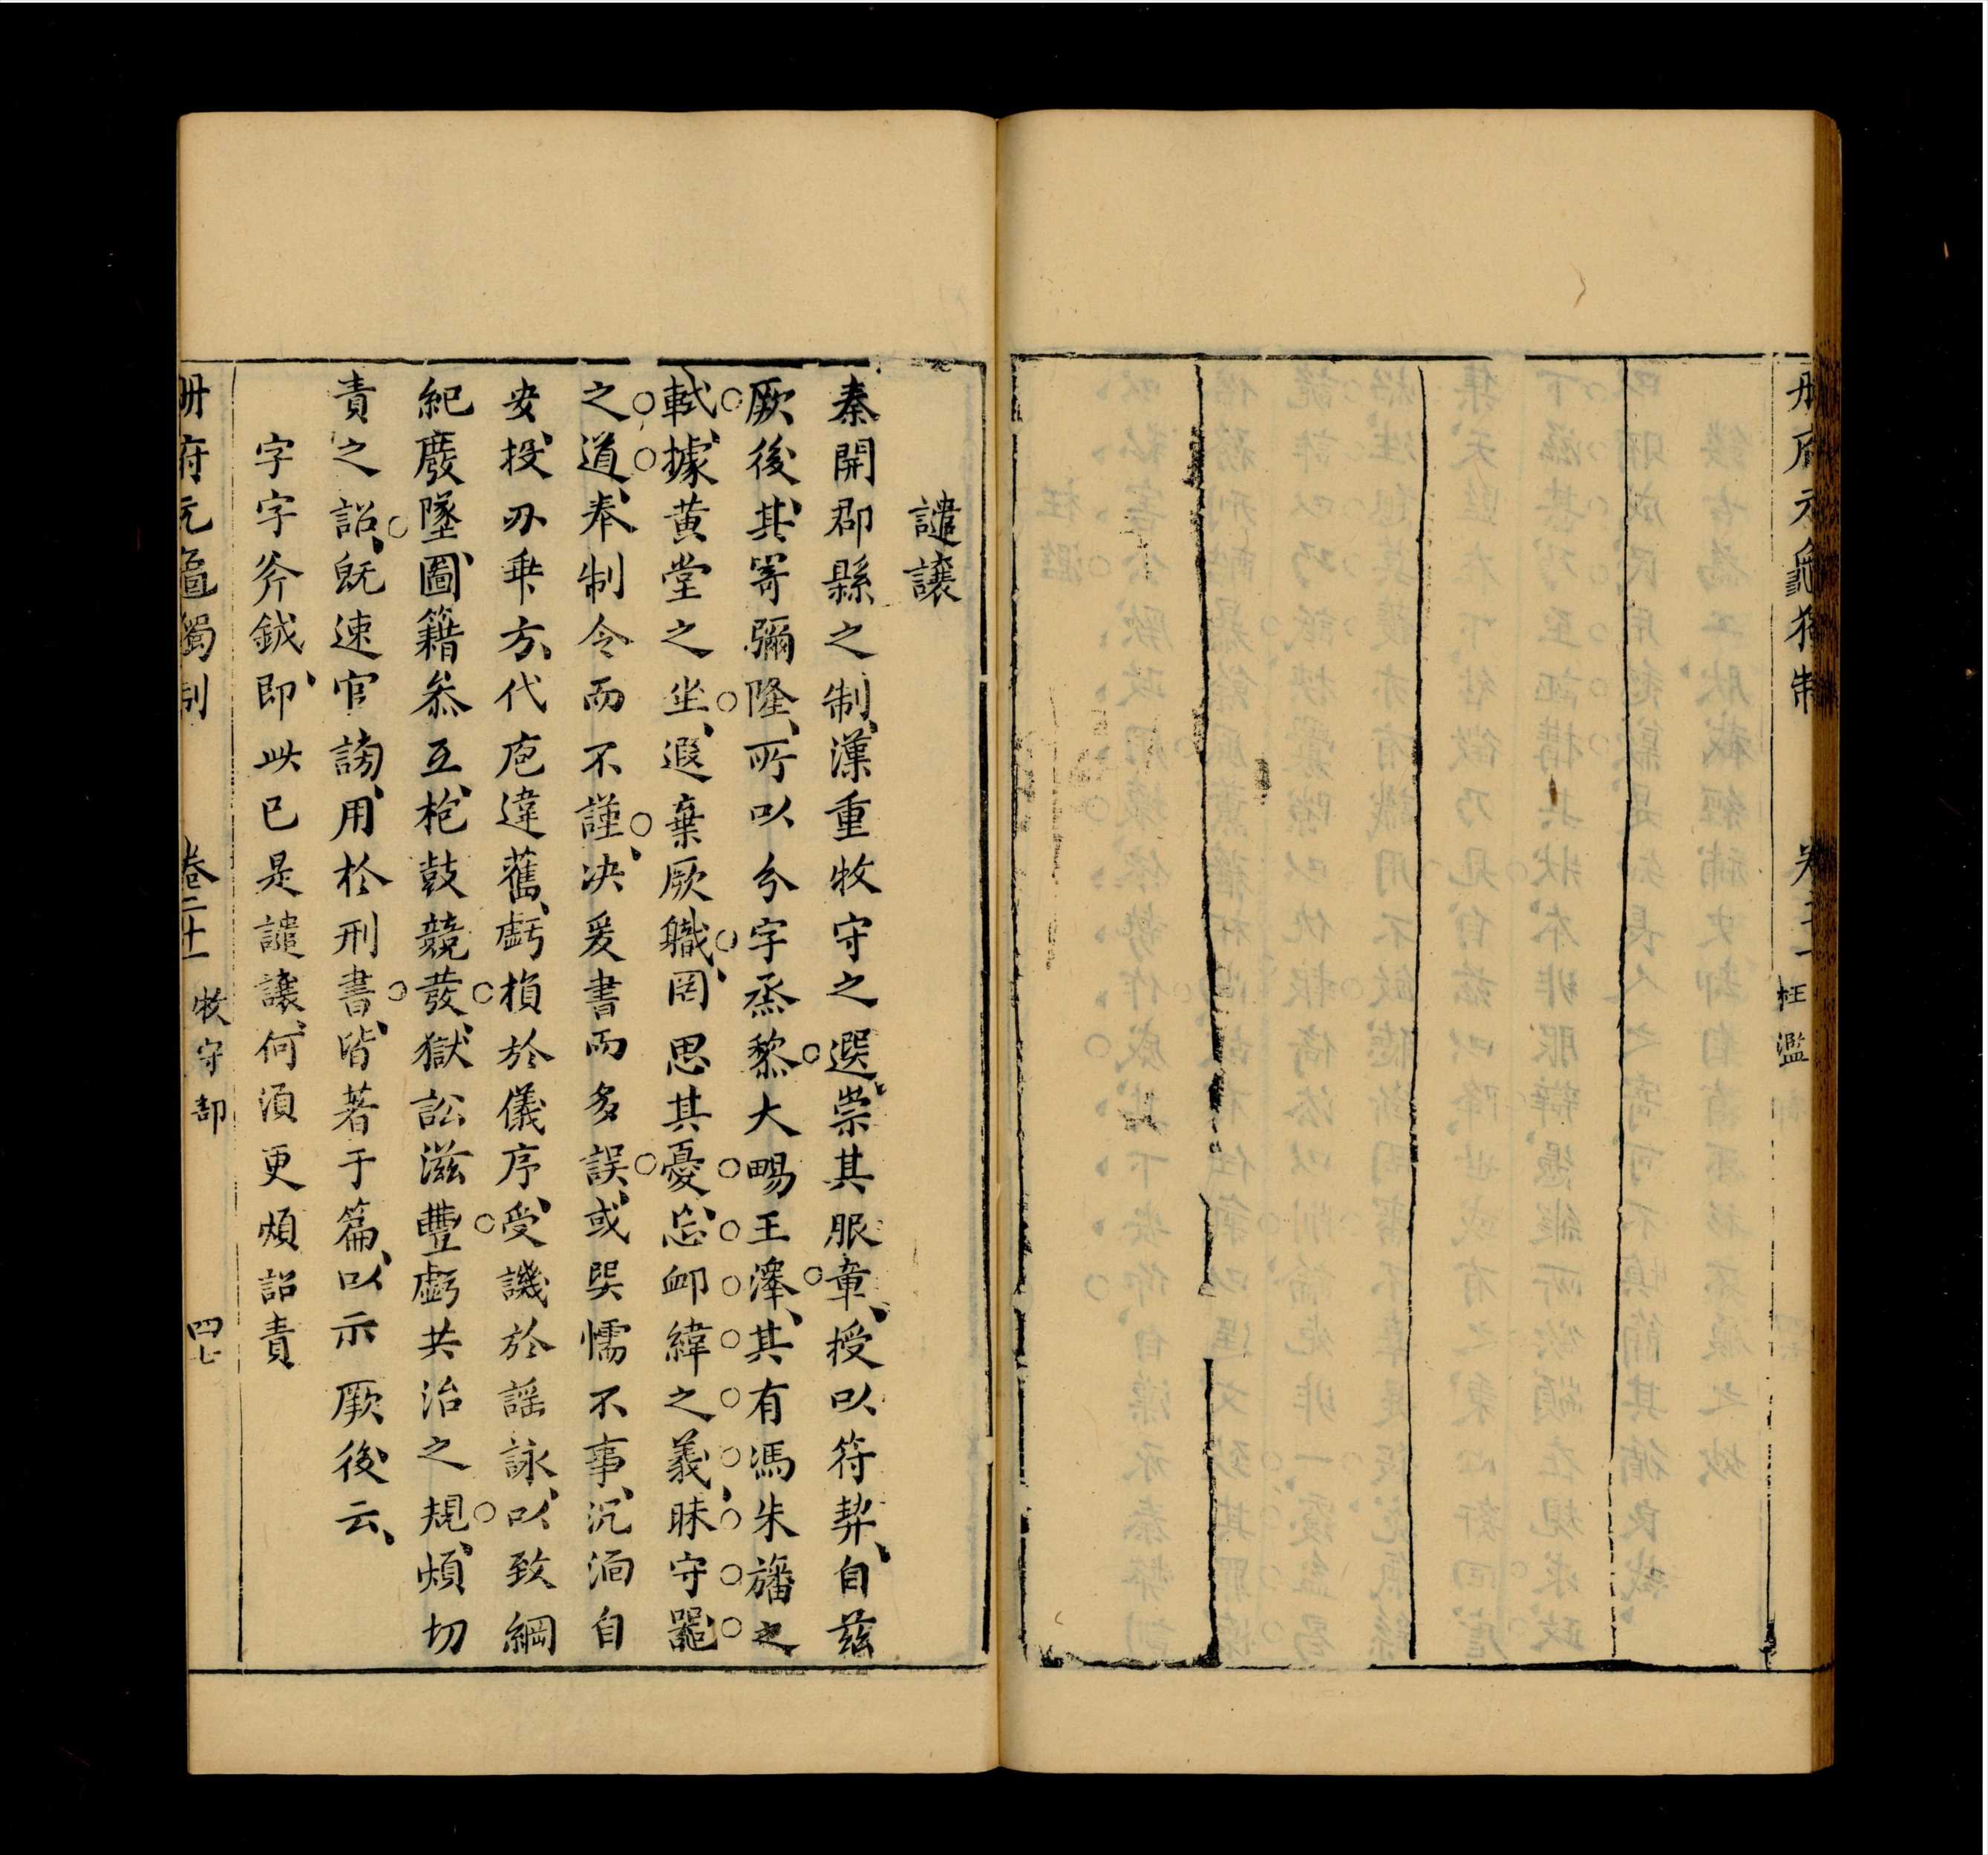 冊府元龜獨制
卷二十一
枉濫
譴讓
秦開郡縣之制、漢重牧守之選、崇其服章、授以符契、自茲
厥後、其寄彌隆、所以分字烝黎、大暢王澤、其有馮朱旛之
軾、據黃堂之坐、遐棄厥職、罔思其憂、忘卹緯之義、昧守噐
之道、奉制令而不謹、决爰書而多誤、或巽懦不事、沉湎自
安、投刅乗方、代庖違舊、虧損於儀序、受譏於謡詠、以致綱
紀廢墜、圖籍叅互、枹鼓競發、獄訟滋豐、虧共治之規、煩切
責之詔、既速官謗、用於刑書、皆著于篇、以示厥後云、
字字斧鉞、即此已是譴讓、何湏更煩詔責
冊府元龜獨制
卷二十一
牧守部
四七